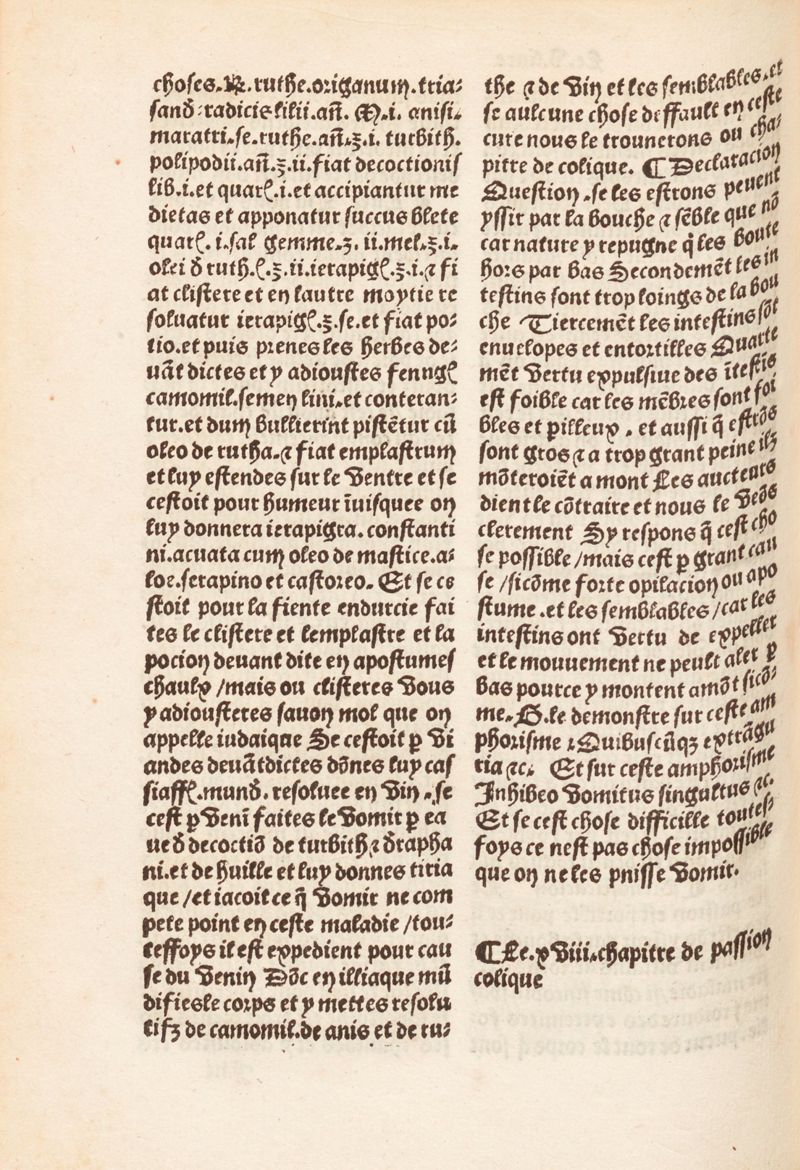 choses. ℞. ruthe. origanum. tria⸗
sanđ⸗ radicis lilii. añ. M. i. anisi.
maratri. se. ruthe. añ. ʒ. i. turbith.
polipodii. añ. ʒ. ii. fiat decoctionis
lib. i. et quarł. i. et accipiantur me
dietas et apponatur succus blete
quarł. i. sal gemme. ʒ. ii. mel. ʒ. i.
olei đ ruth. ł. ʒ. ii. ierapigł. ʒ. i. ⁊ fi
at clistere et en lautre moytie re
soluatur ierapigł. ʒ. se. et fiat po⸗
tio. et puis prenes les herbes de⸗
uāt dictes et y adioustes fenugł
camomil. semen lini. et conteran⸗
tur. et dum bullierint pistētur cū
oleo de rutha. ⁊ fiat emplastrum
et luy estendes sur le ventre et se
cestoit pour humeur īuisquee on
luy donnera ierapigra. constanti
ni. acuata cum oleo de mastice. a⸗
loe. serapino et castoreo. Et se ce
stoit pour la fiente endurcie fai
tes le clistere et lemplastre et la
pocion deuant dite en apostumes
chaulx / mais ou clisteres vous
y adiousteres sauon mol que on
appelle iudaique Se cestoit ꝑ vi
andes deuātdictes dōnes luy cas
siaffł. munđ. resoluee en vin. se
cest ꝑ venī faites le vomir ꝑ ea
ue đ decoctiō de turbith ⁊ đ rapha
ni. et de huille et luy donnes tiria
que / et iacoit ce q̄ vomir ne com
pete point en ceste maladie / tou⸗
teffoys il est expedient pour cau
se du venin Dōc en illiaque mū
difiesle corps et y mettes resolu
tifz de camomil. de anis et de ru⸗
the ⁊ de vin et les semblables. et
se aulcune chose deffault en ceste
cure nous le trouuerons ou cha⸗
pitre de colique. ¶ Declaracion
Question. se les estrons peuent
yssir par la bouche ⁊ sēble que nō
car nature y repugne q̄ les boute
hors par bas Secondemēt les in
testins sont trop loings de la bou
che Tiercemēt les intestins sōt
enuelopes et entortilles Quarte
mēt vertu expulsiue des ītestīs
est foible car les mēbres sont foi
bles et ꝑilleux. et aussi q̄ estrōs
sont gros ⁊ a trop grant peine ilz
mōteroiēt a mont Les aucteurs
dient le cōtraire et nous le veōs
clerement Sy respons q̄ cest cho
se possible / mais cest ꝑ grant cau
se / sicōme forte opilacion ou apo
stume. et les semblables / car les
intestins ont vertu de expeller
et le mouuement ne peult aler ꝑ
bas pource y montent amōt sicō⸗
me. G. le demonstre sur ceste am
phorisme ⁊ Quibuscūqꝫ extrāgu
ria ⁊c. Et sur ceste amphorisme
Inhibeo vomitus singultus ⁊c.
Et se cest chose difficille toutes⸗
foys ce nest pas chose impossible
que on ne les puisse vomir.
¶ Le. xviii. chapitre de passion
colique